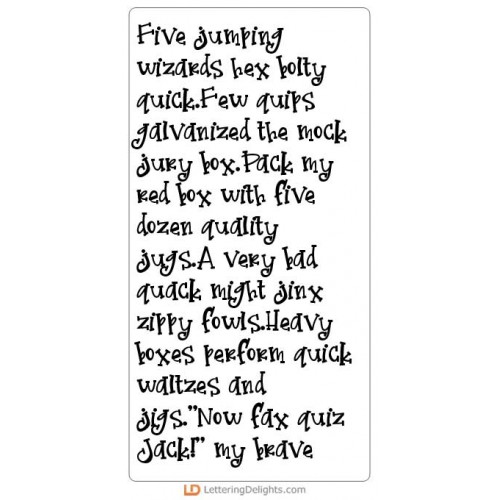 Five jumping
wizards hex bolty
quick.Few quips
galvanized the mock
jury box.Pack my
red box with five
dozen quality
jugs.A very bad
quack might jinx
zippy fowls.Heavy
boxes perform quick
waltzes and
jigs."Now fax quiz
Jack!" my brave
LD LetteringDelights.com